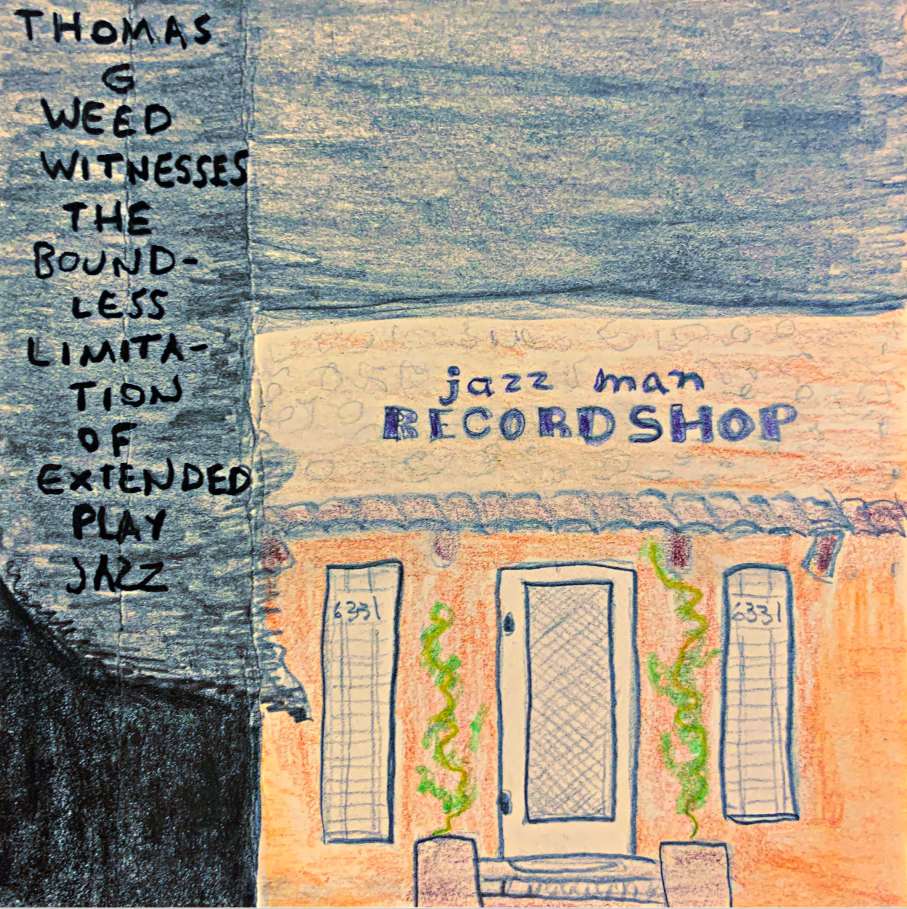 THOMAS
G
WEED
WITNESSES
THE
BOUND-
LESS
LIMITA-
TION
OF
EXTENDED
PLAY
JAZZ
jazz man
RECORD SHOP
6331
6331